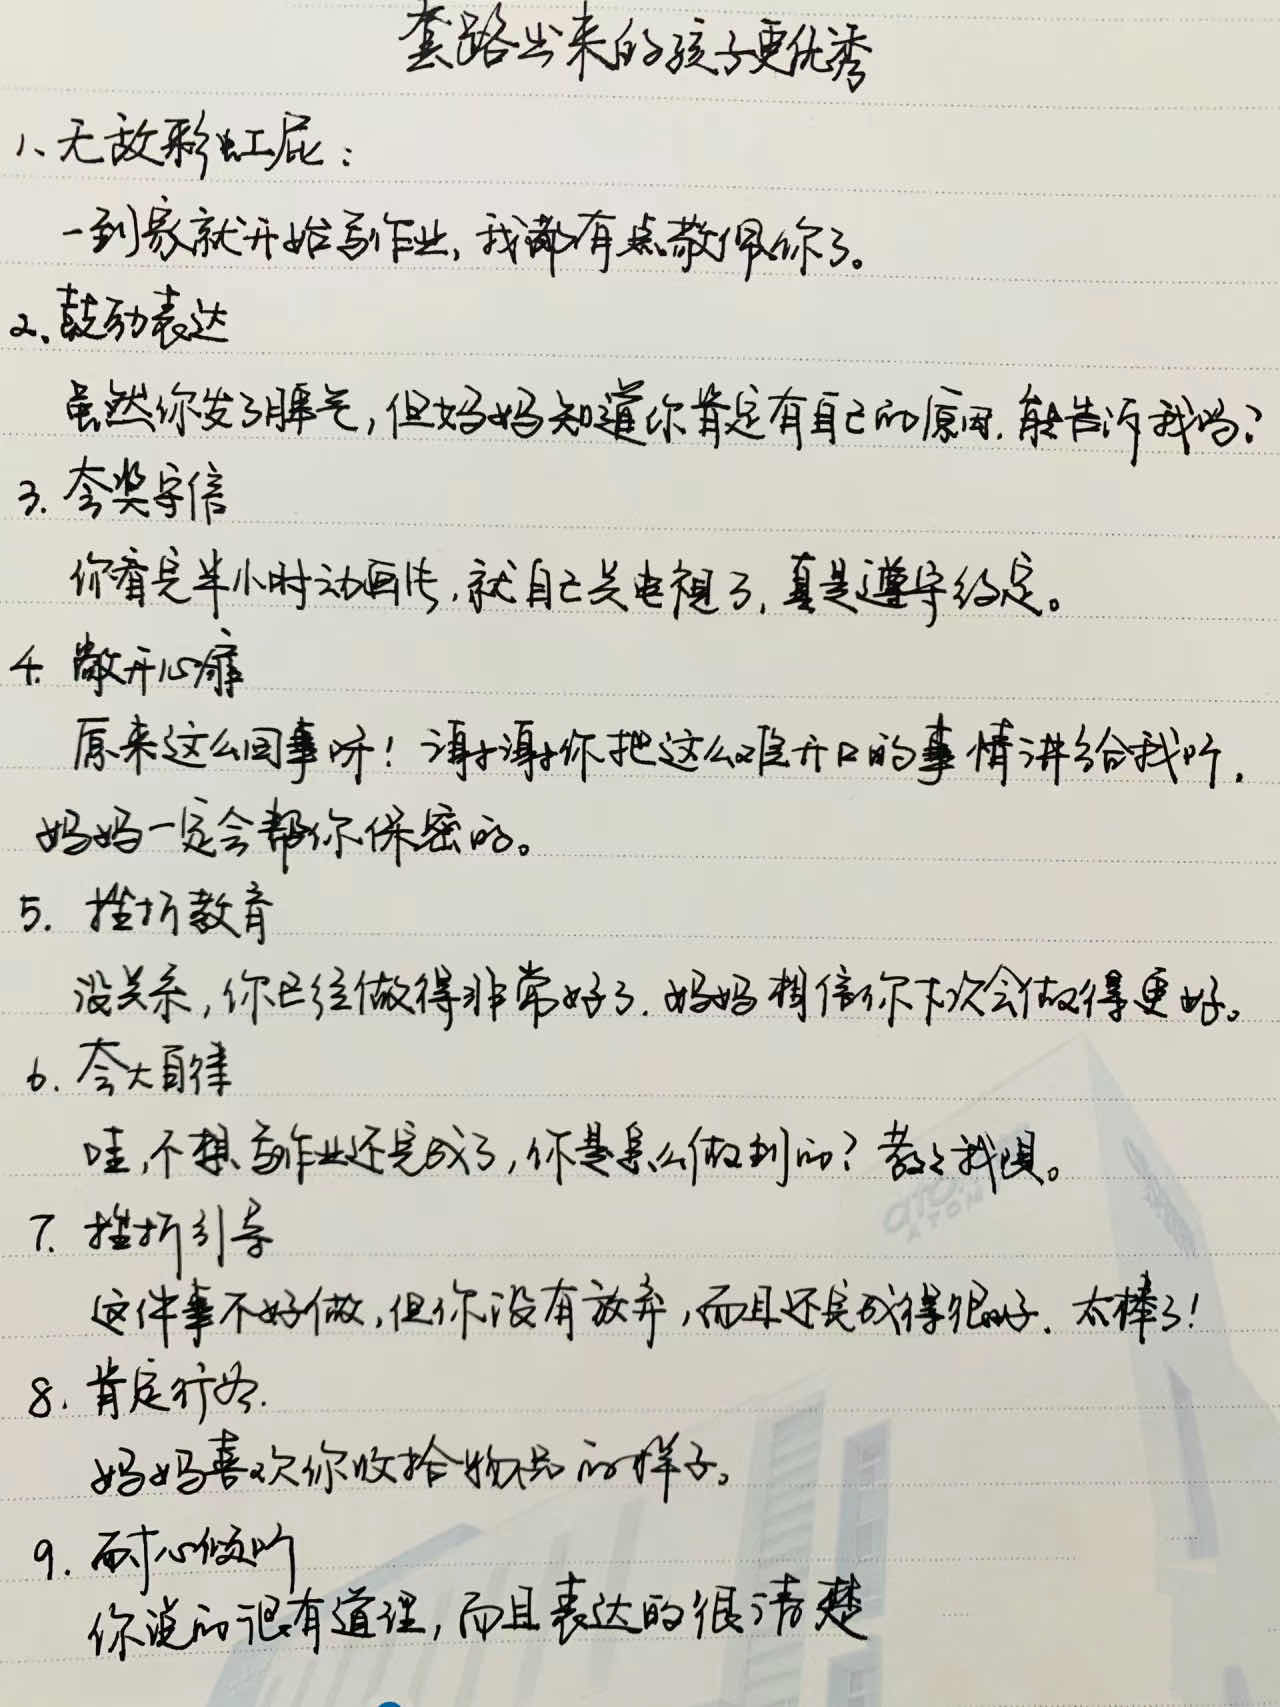 套路出来的孩子更优秀
1、无敌彩虹屁：
一到家就开始写作业，我都有点敬佩你了。
2、鼓励表达
虽然你发了脾气，但妈妈知道你肯定有自己的原因.能告诉我吗？
3. 夸奖守信
你看完半小时动画片，就自己关电视了，真是遵守约定。
4. 敞开心扉
原来这么回事呀！谢谢你把这么难开口的事情讲给我听，
妈妈一定会帮你保密的。
5. 挫折教育
没关系，你已经做得非常好了.妈妈相信你下次会做得更好。
6. 夸大自律
哇，不想写作业还完成了，你是怎么做到的？教教我呗。
7. 挫折引导
这件事不好做，但你没有放弃，而且还完成得很好. 太棒了！
8. 肯定行为.
妈妈喜欢你收拾物品的样子。
9. 耐心倾听
你说的很有道理，而且表达的很清楚
ATOM